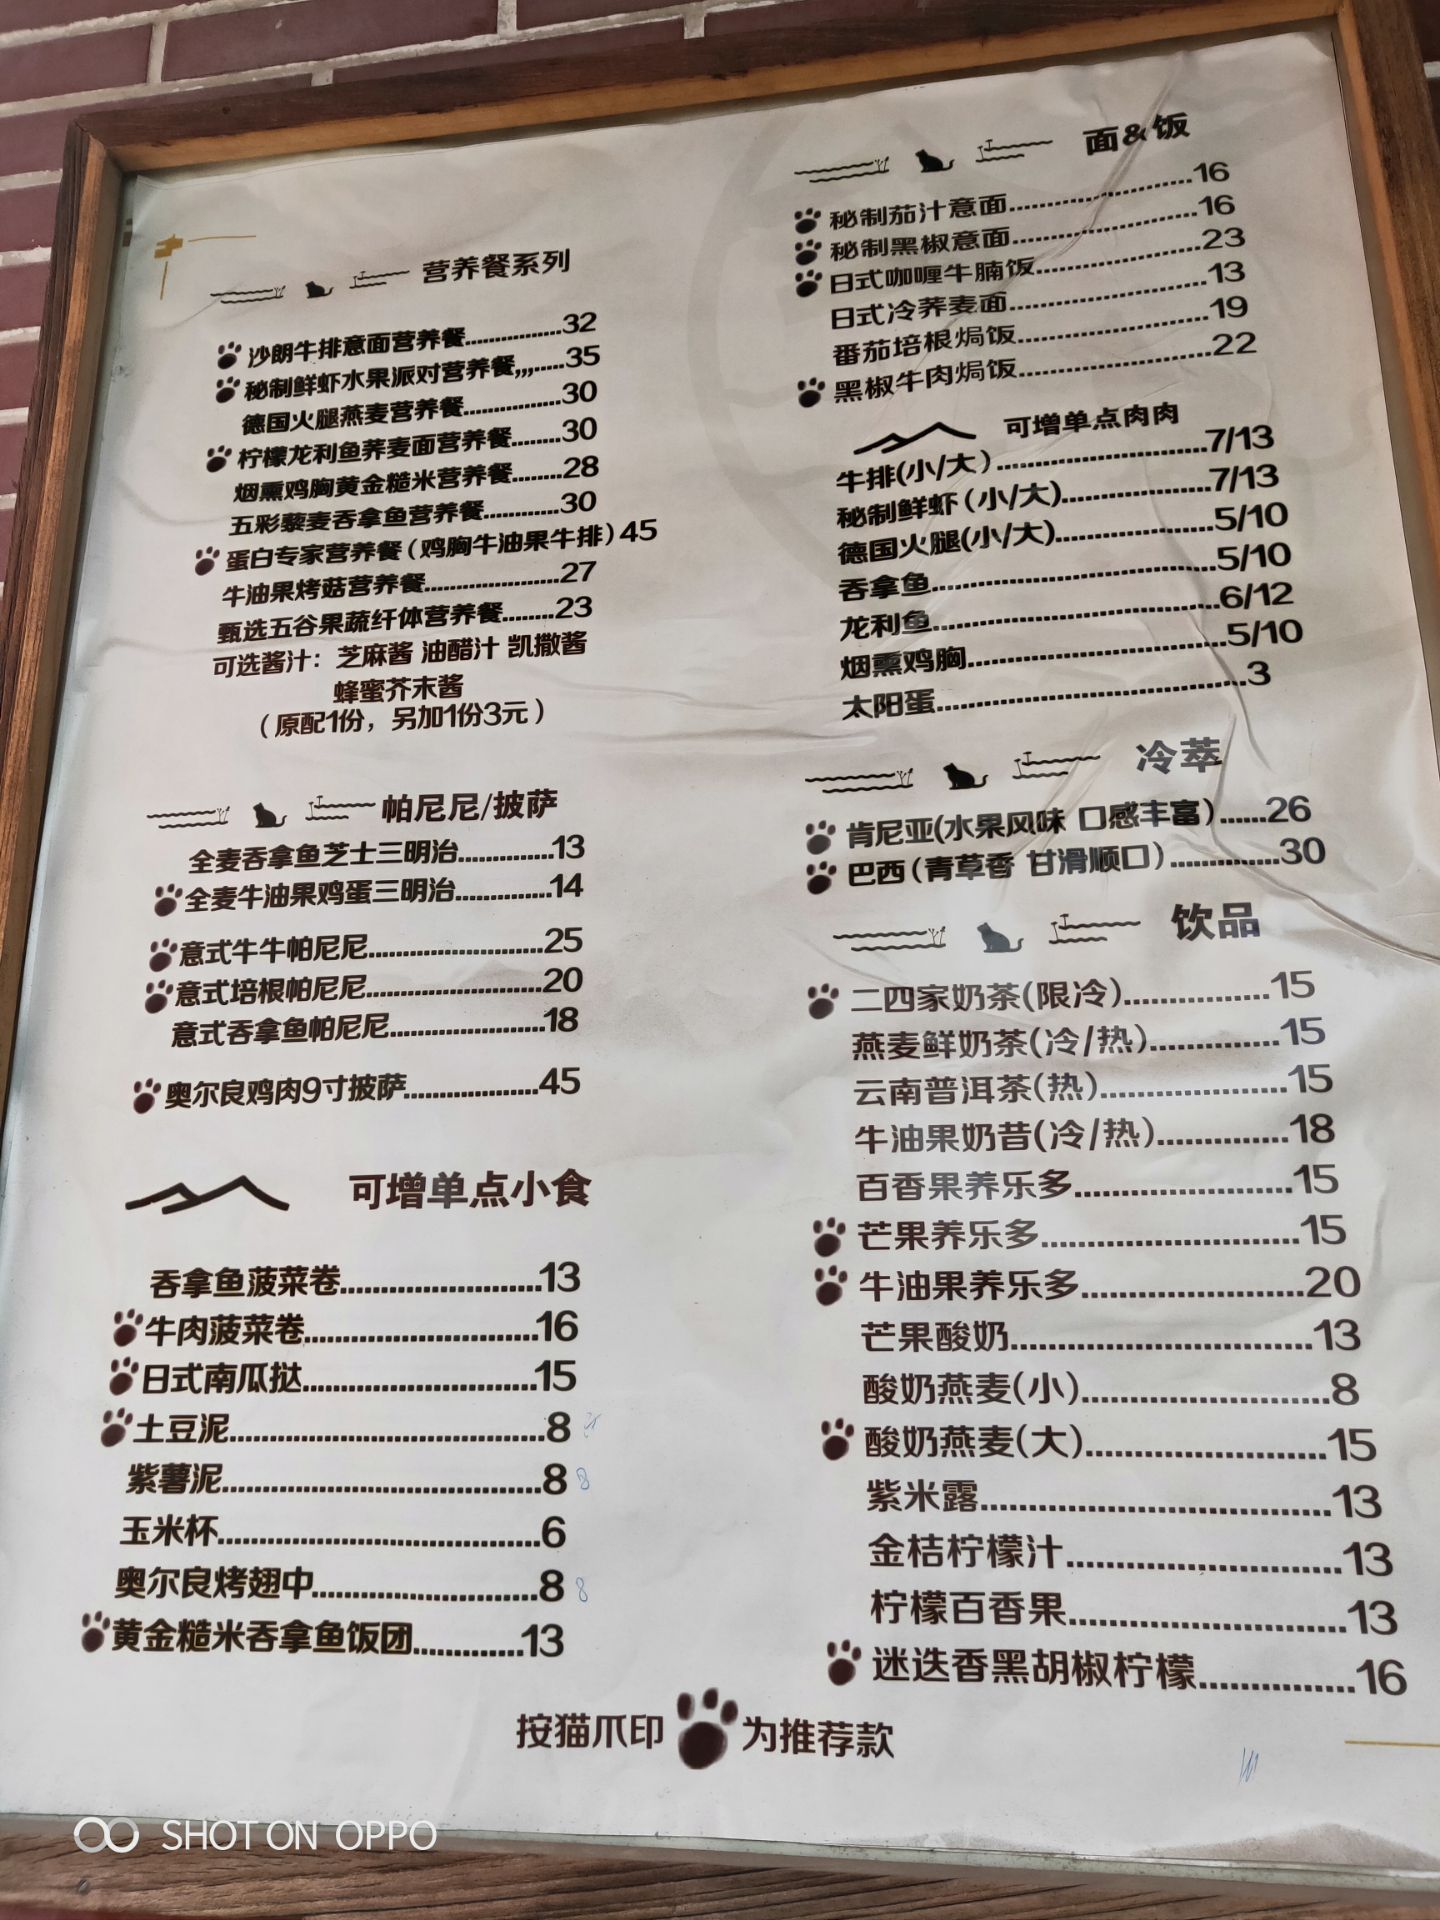 营养餐系列
沙朗牛排意面营养餐...............32
秘制鲜虾水果派对营养餐,,,......35
德国火腿燕麦营养餐...............30
柠檬龙利鱼荞麦面营养餐........30
烟熏鸡胸黄金糙米营养餐........28
五彩藜麦吞拿鱼营养餐............30
蛋白专家营养餐(鸡胸牛油果牛排)45
牛油果烤菇营养餐.....................27
甄选五谷果蔬纤体营养餐........23
可选酱汁：芝麻酱 油醋汁 凯撒酱
蜂蜜芥末酱
（原配1份，另加1份3元）
帕尼尼/披萨
全麦吞拿鱼芝士三明治..............13
全麦牛油果鸡蛋三明治..............14
意式牛牛帕尼尼..........................25
意式培根帕尼尼..........................20
意式吞拿鱼帕尼尼.......................18
奥尔良鸡肉9寸披萨....................45
可增单点小食
吞拿鱼菠菜卷..........................13
牛肉菠菜卷..............................16
日式南瓜挞..............................15
土豆泥........................................8
紫薯泥........................................8 8
玉米杯........................................6
奥尔良烤翅中............................8 8
黄金糙米吞拿鱼饭团..............13
面&饭
秘制茄汁意面........................16
秘制黑椒意面........................16
日式咖喱牛腩饭.....................23
日式冷荞麦面........................13
番茄培根焗饭........................19
黑椒牛肉焗饭........................22
可增单点肉肉
牛排(小/大)..........................7/13
秘制鲜虾(小/大)...................7/13
德国火腿(小/大)...................5/10
吞拿鱼..................................5/10
龙利鱼..................................6/12
烟熏鸡胸...............................5/10
太阳蛋..................................3
冷萃
肯尼亚(水果风味 口感丰富)......26
巴西(青草香 甘滑顺口)..............30
饮品
二四家奶茶(限冷)..................15
燕麦鲜奶茶(冷/热)................15
云南普洱茶(热)......................15
牛油果奶昔(冷/热)................18
百香果养乐多..........................15
芒果养乐多..............................15
牛油果养乐多..........................20
芒果酸奶..................................13
酸奶燕麦(小)............................8
酸奶燕麦(大)..........................15
紫米露......................................13
金桔柠檬汁..............................13
柠檬百香果..............................13
迷迭香黑胡椒柠檬..................16
按猫爪印 为推荐款
SHOT ON OPPO